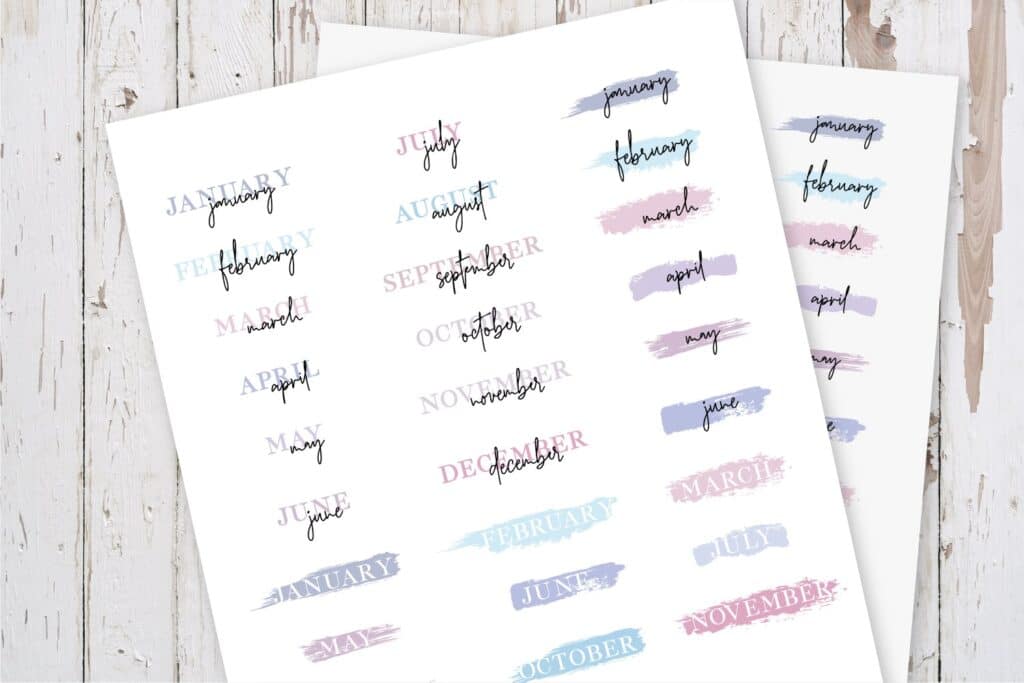 JANUARY
january
FEBRUARY
february
MARCH
march
APRIL
april
MAY
may
JUNE
june
JULY
july
AUGUST
august
SEPTEMBER
september
OCTOBER
october
NOVEMBER
november
DECEMBER
december
january
february
march
april
may
june
JANUARY
FEBRUARY
MARCH
JUNE
JULY
MAY
OCTOBER
NOVEMBER
january
february
march
april
may